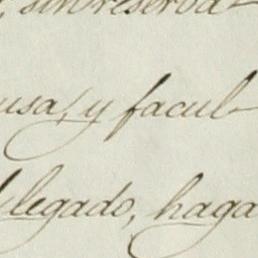 , sin reserva
usa, y facul-
legado, haga